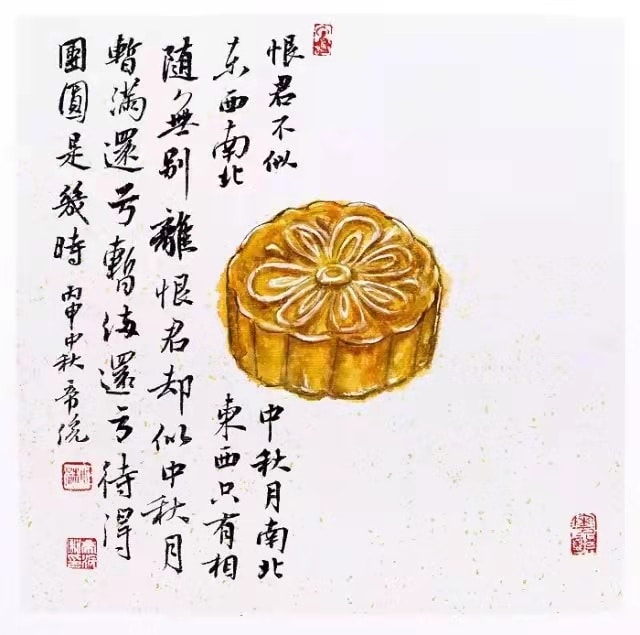 恨君不似中秋月南北
东西南北東西只有相
随無别離恨君却似中秋月
暫滿還亏暫满還亏待得
團圓是幾時 丙申中秋